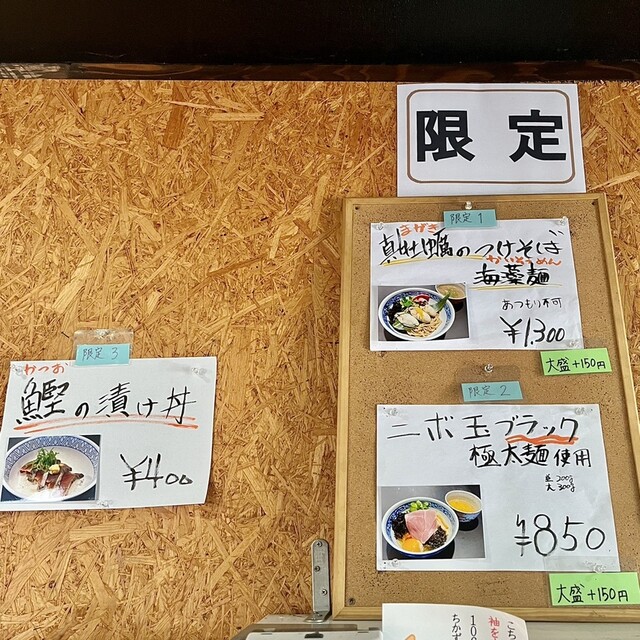 限定
限定1
まがき
真牡蠣のつけそば
かいそうめん
海藻麺
あつもり不可
¥1,300
大盛+150円
限定2
ニボ玉ブラック
極太麺使用
並200g
大300g
¥850
大盛+150円
限定3
かつお
鰹の漬け丼
¥400
こち
袖を
10
ちかず